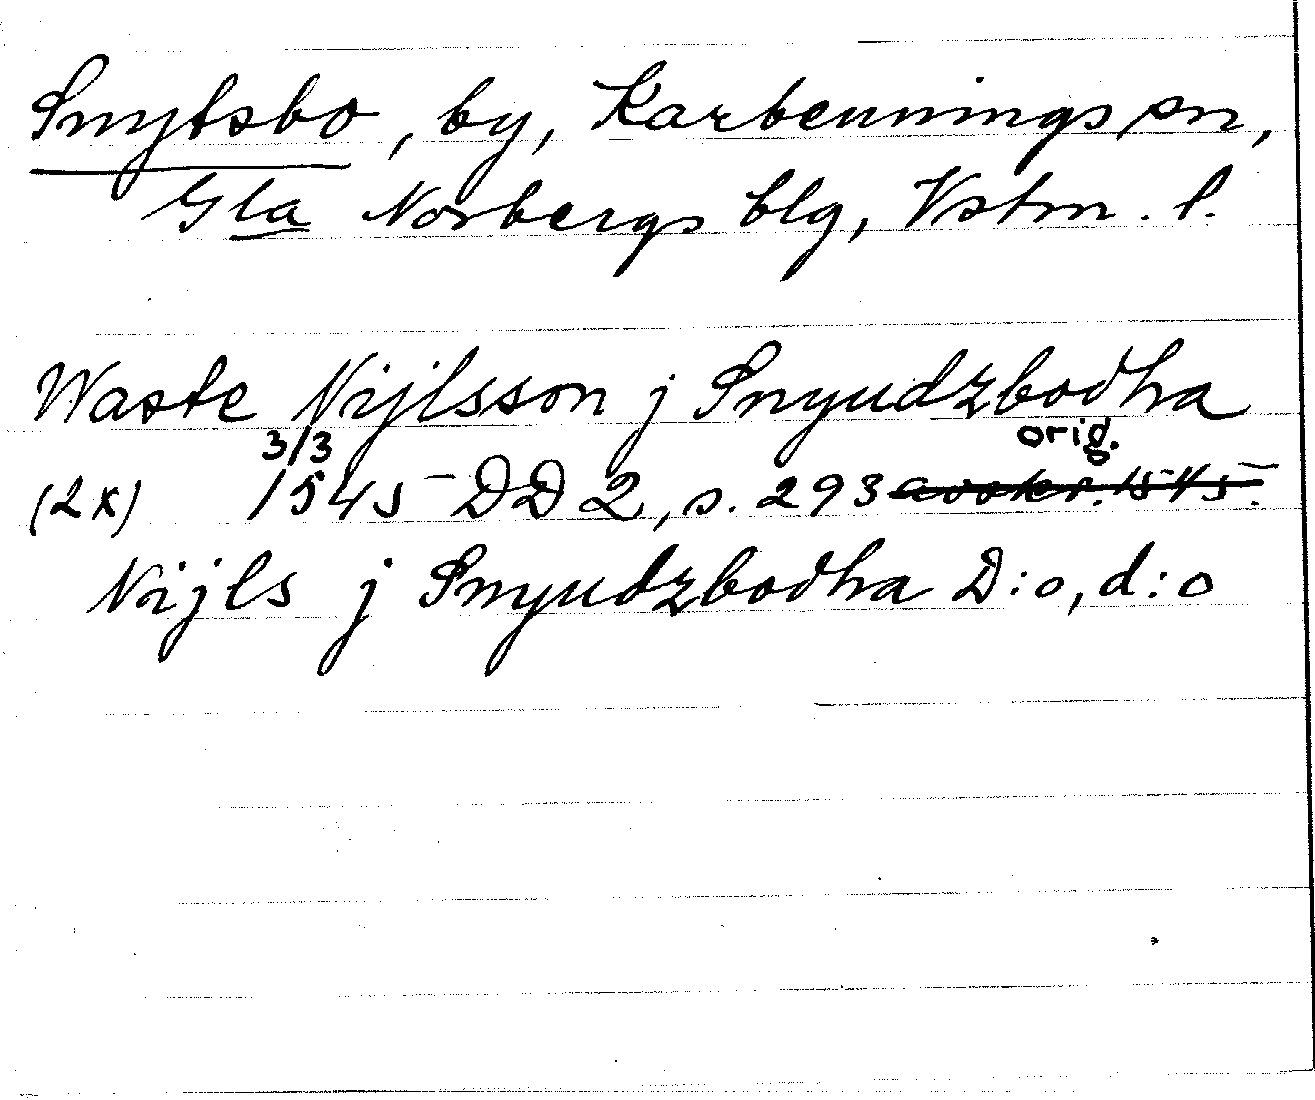 Snytsbo, by, Karbennings sn,
Gla Norbergs blg, Vstm. l.
Waste Nijlsson j Snyudzbodha
(2x) 3/3 1545 DD 2, s. 293 orig.
Nijls j Snyudzbodha D:o, d:o